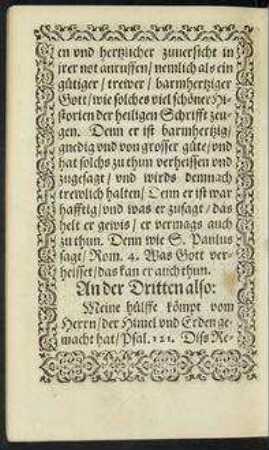 en vnd hertzlicher zuuersicht in
jrer not anruffen/ nemlich als ein
gütiger/ trewer/ barmhertziger
Gott/ wie solches viel schöner Hi-
storien der heiligen Schrifft zeu-
gen. Denn er ist barmhertzig/
gnedig vnd von grosser güte/ vnd
hat solchs zu thun verheissen vnd
zugesagt/ vnd wirds demnach
trewlich halten/ Denn er ist war
hafftig/ vnd was er zusagt/ das
helt er gewis/ er vermags auch
zu thun. Denn wie S. Paulus
sagt/ Rom. 4. Was Gott ver-
heisset/ das kan er auch thun.
An der Dritten also:
Meine hülffe kömpt vom
Herrn/ der Himel vnd Erden ge-
macht hat/ Psal. 121. Diss Re-